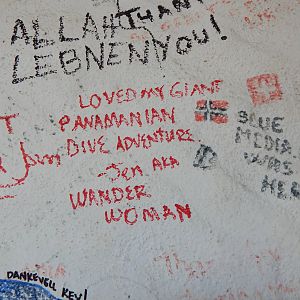 ALLAH THANK
LEBNEN YOU!
LOVED MY GIANT
PANAMANIAN
DIVE ADVENTURE
-Jen AKA
WANDER
WOMAN
BLUE
MEDIA
WAS
HER
DANKEVELL KEV!